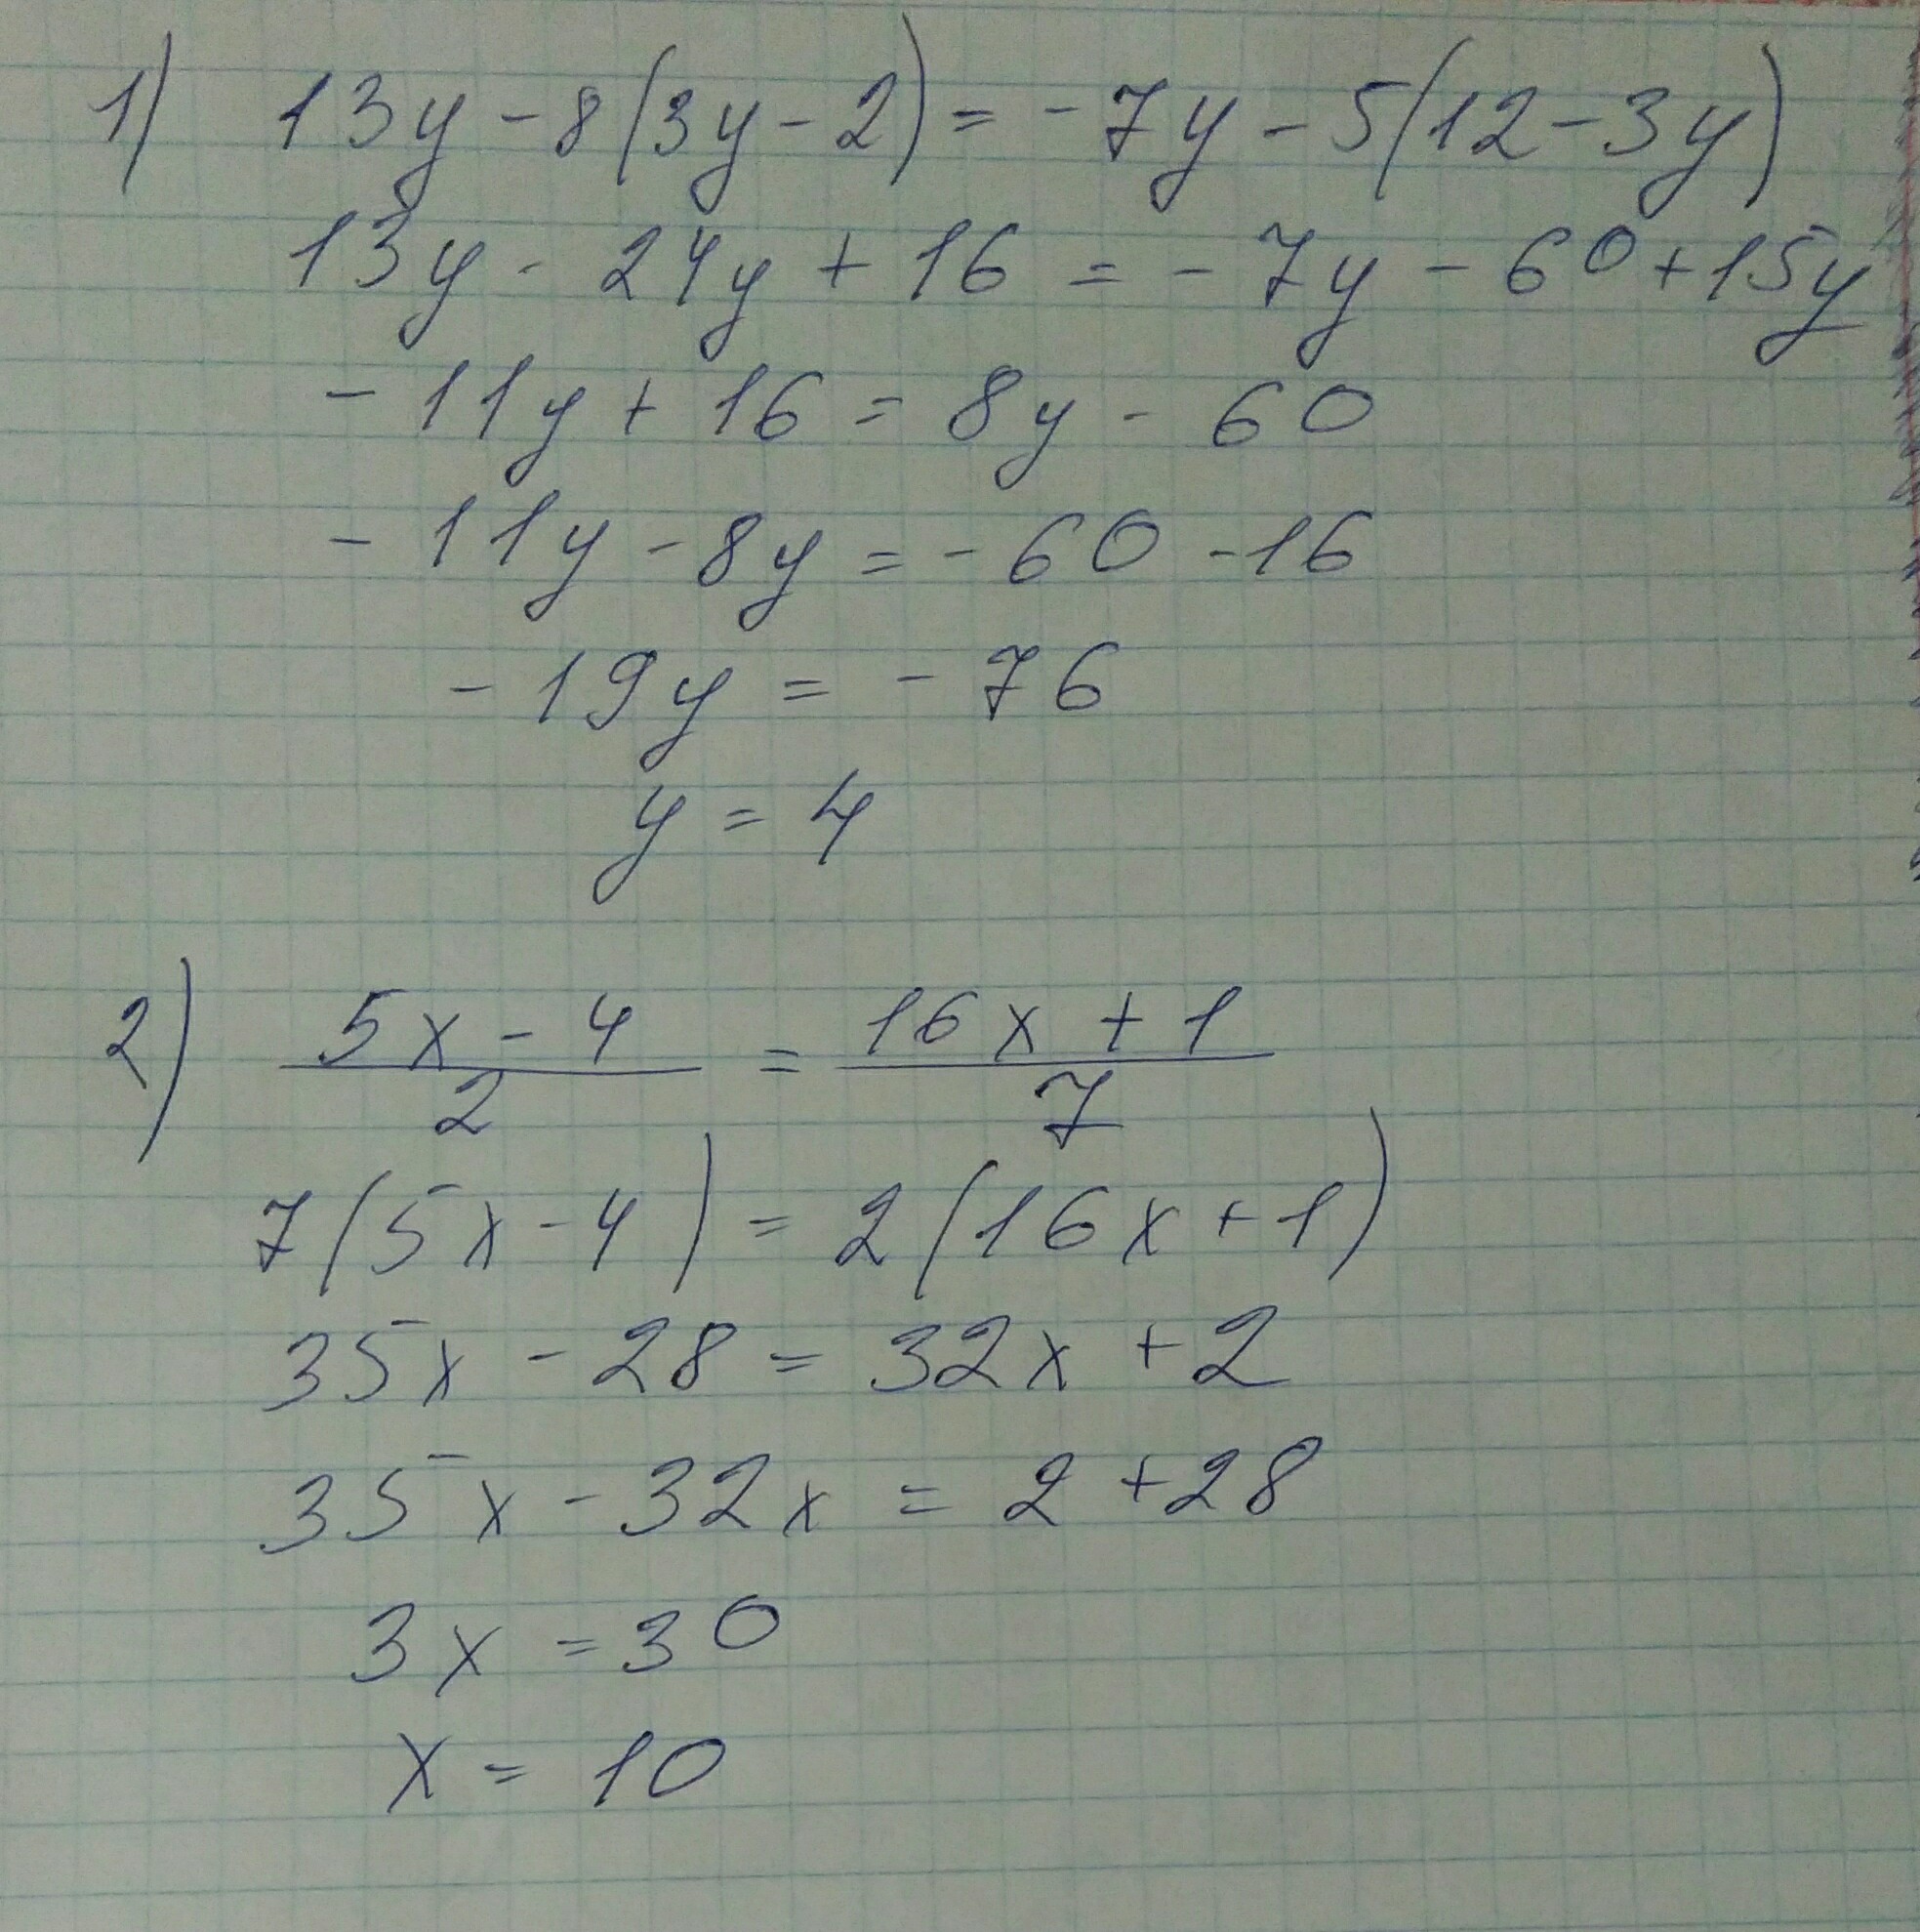 1) 13y - 8(3y - 2) = -7y - 5(12 - 3y)
13y - 24y + 16 = -7y - 60 + 15y
-11y + 16 = 8y - 60
-11y - 8y = -60 - 16
-19y = -76
y = 4
2) (5x - 4)/2 = (16x + 1)/7
7(5x - 4) = 2(16x + 1)
35x - 28 = 32x + 2
35x - 32x = 2 + 28
3x = 30
x = 10